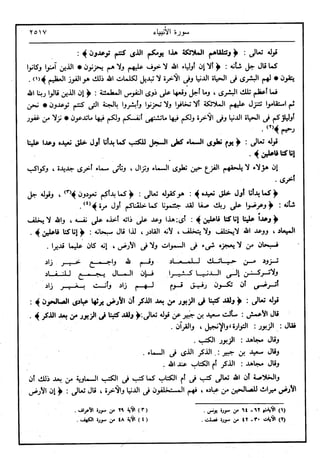 سورة الأنبياء
٢٥١٧
قوله تعالى : ﴿ وتتلقاهم الملائكة هذا يومكم الذى كنتم توعدون ﴾ :
كما قال جل شأنه : ﴿ ألا إن أولياء الله لا خوف عليهم ولا هم يحزنون * الذين آمنوا وكانوا
يتقون * لهم البشرى فى الحياة الدنيا وفى الآخرة لا تبديل لكلمات الله ذلك هو الفوز العظيم ﴾(١) .
فما أعظم تلك البشرى ، وما أجل وقعها على ذوى النفوس المطمئنة : ﴿ إن الذين قالوا ربنا الله
ثم استقاموا تتنزل عليهم الملائكة ألا تخافوا ولا تحزنوا وأبشروا بالجنة التى كنتم توعدون * نحن
أولياؤكم فى الحياة الدنيا وفى الآخرة ولكم فيها ماتشتهى أنفسكم ولكم فيها ماتدعون * نزلا من غفور
رحيم ﴾(٢) .
قوله تعالى : ﴿ يوم نطوى السماء كطى السجل للكتب كما بدأنا أول خلق نعيده وعدا علينا
إنا كنا فاعلين ﴾ .
إن هؤلاء لا يلحقهم الفزع حين تطوى السماء وتزال ، وتأتى سماء أخرى جديدة ، وكواكب
أخرى .
﴿ كما بدأنا أول خلق نعيده ﴾ : هو كقوله تعالى : ﴿ كما بدأكم تعودون ﴾(٣) ، وقوله جل
شأنه : ﴿ وعرضوا على ربك صفا لقد جئتمونا كما خلقناكم أول مرة ﴾(٤) .
﴿ وعدا علينا إنا كنا فاعلين ﴾ : أى : هذا وعد على ذاته أخذه على نفسه ، والله لا يخلف
الميعاد ، ووعد الله لايختلف ولايتخلف ، لأنه القادر ، لذا قال سبحانه : ﴿ إنا كنا فاعلين ﴾ .
فسبحان من لا يعجزه شىء فى السموات ولا فى الأرض ، إنه كان عليما قديرا .
تزود من حياتك للمعاد وقم لله واجمع خير زاد
ولاتركن إلى الدنيا كثيرا فإن المال يجمع للنفاد
أترضى أن تكون رفيق قوم لهم زاد وأنت بغير زاد
قوله تعالى : ﴿ ولقد كتبنا فى الزبور من بعد الذكر أن الأرض يرثها عبادى الصالحون ﴾ :
قال الأعمش : سألت سعيد بن جبير عن قوله تعالى : ﴿ ولقد كتبنا فى الزبور من بعد الذكر ﴾ .
فقال : الزبور : التوراة ، والإنجيل ، والقرآن .
وقال مجاهد : الزبور الكتب .
وقال سعيد بن جبير : الذكر الذى فى السماء .
وقال مجاهد : الذكر أم الكتاب عند الله .
والخلاصة أن الله تعالى كتب فى أم الكتاب كما كتب فى الكتب السماوية من بعد ذلك أن
الأرض ميراث للصالحين من عباده ، فهم المستخلفون فى الدنيا والآخرة ، قال تعالى : ﴿ إن الأرض
(١) الآيات ٦٢ـ ٦٤ من سورة يونس . (٣) الآية ٢٩ من سورة الأعراف .
(٢) الآيات ٣٠ـ ٣٢ من سورة فصلت . (٤) الآية ٤٨ من سورة الكهف .